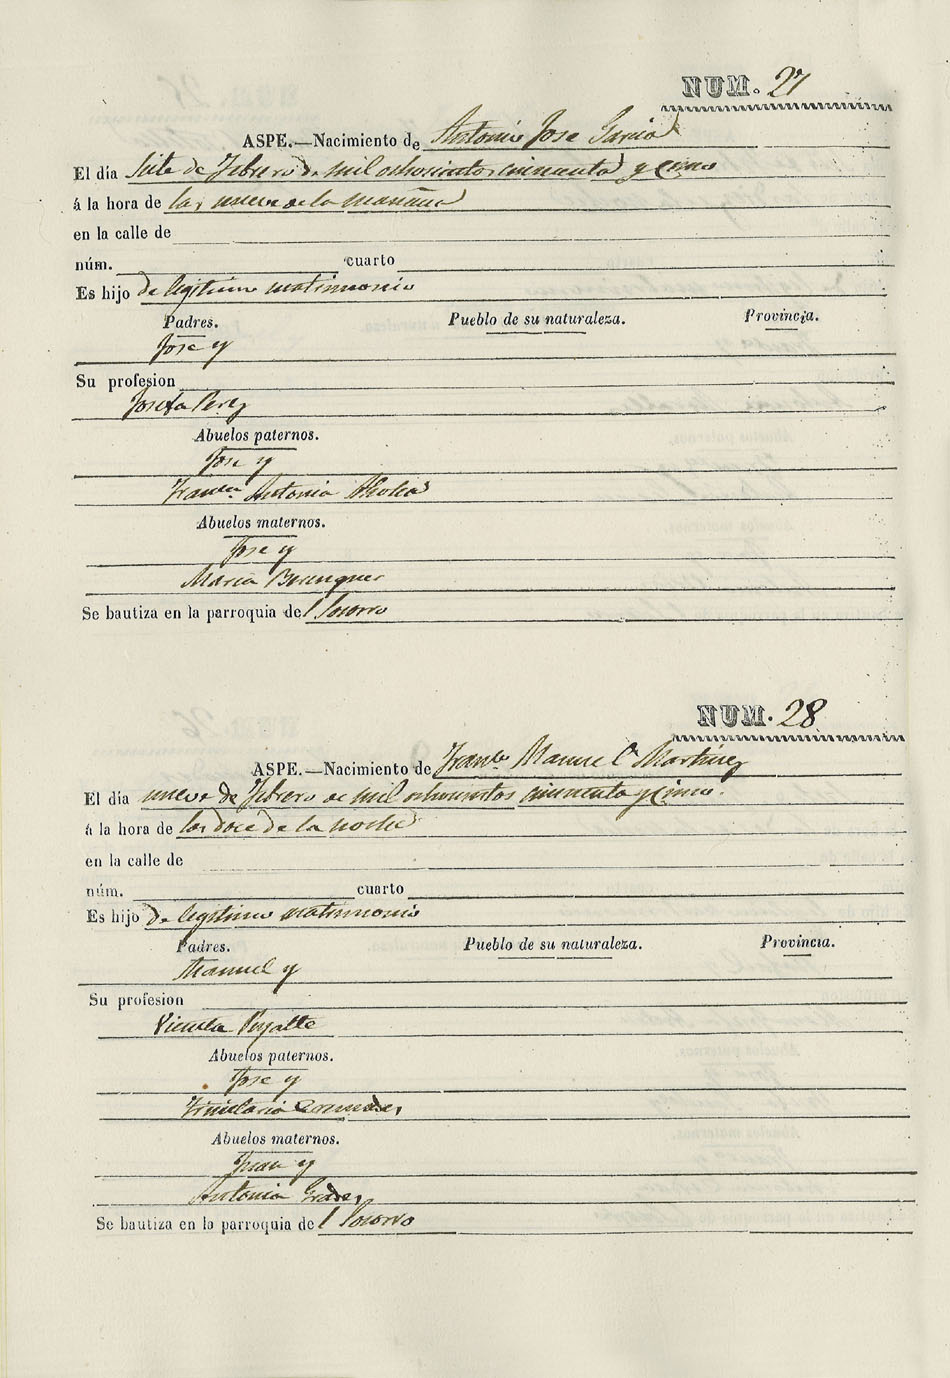 NUM. 27
ASPE.—Nacimiento de Antonio Jose Garcia
El día siete de Febrero de mil ochocientos cincuenta y cinco
á la hora de las nueve de la mañana
en la calle de
núm. cuarto
Es hijo de legitimo matrimonio
Padres. Pueblo de su naturaleza. Provincia.
Jose y
Su profesion
Josefa Perez
Abuelos paternos.
Jose y
Franca Antonia
Abuelos maternos.
Jose y
Maria Berenguer
Se bautiza en la parroquia del Socorro
NUM. 28
ASPE.—Nacimiento de Franco Manuel Martinez
El día nueve de Febrero de mil ochocientos cincuenta y cinco.
á la hora de las doce de la noche
en la calle de
núm. cuarto
Es hijo de legitimo matrimonio
Padres. Pueblo de su naturaleza. Provincia.
Manuel y
Su profesion
Vicenta
Abuelos paternos.
Jose y
Trinitaria Cremades
Abuelos maternos.
Juan y
Antonia
Se bautiza en la parroquia del Socorro